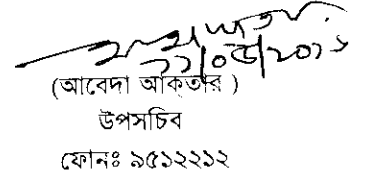 (আবেদা আকতার )
উপসচিব
ফোনঃ ৯৫১২২১২